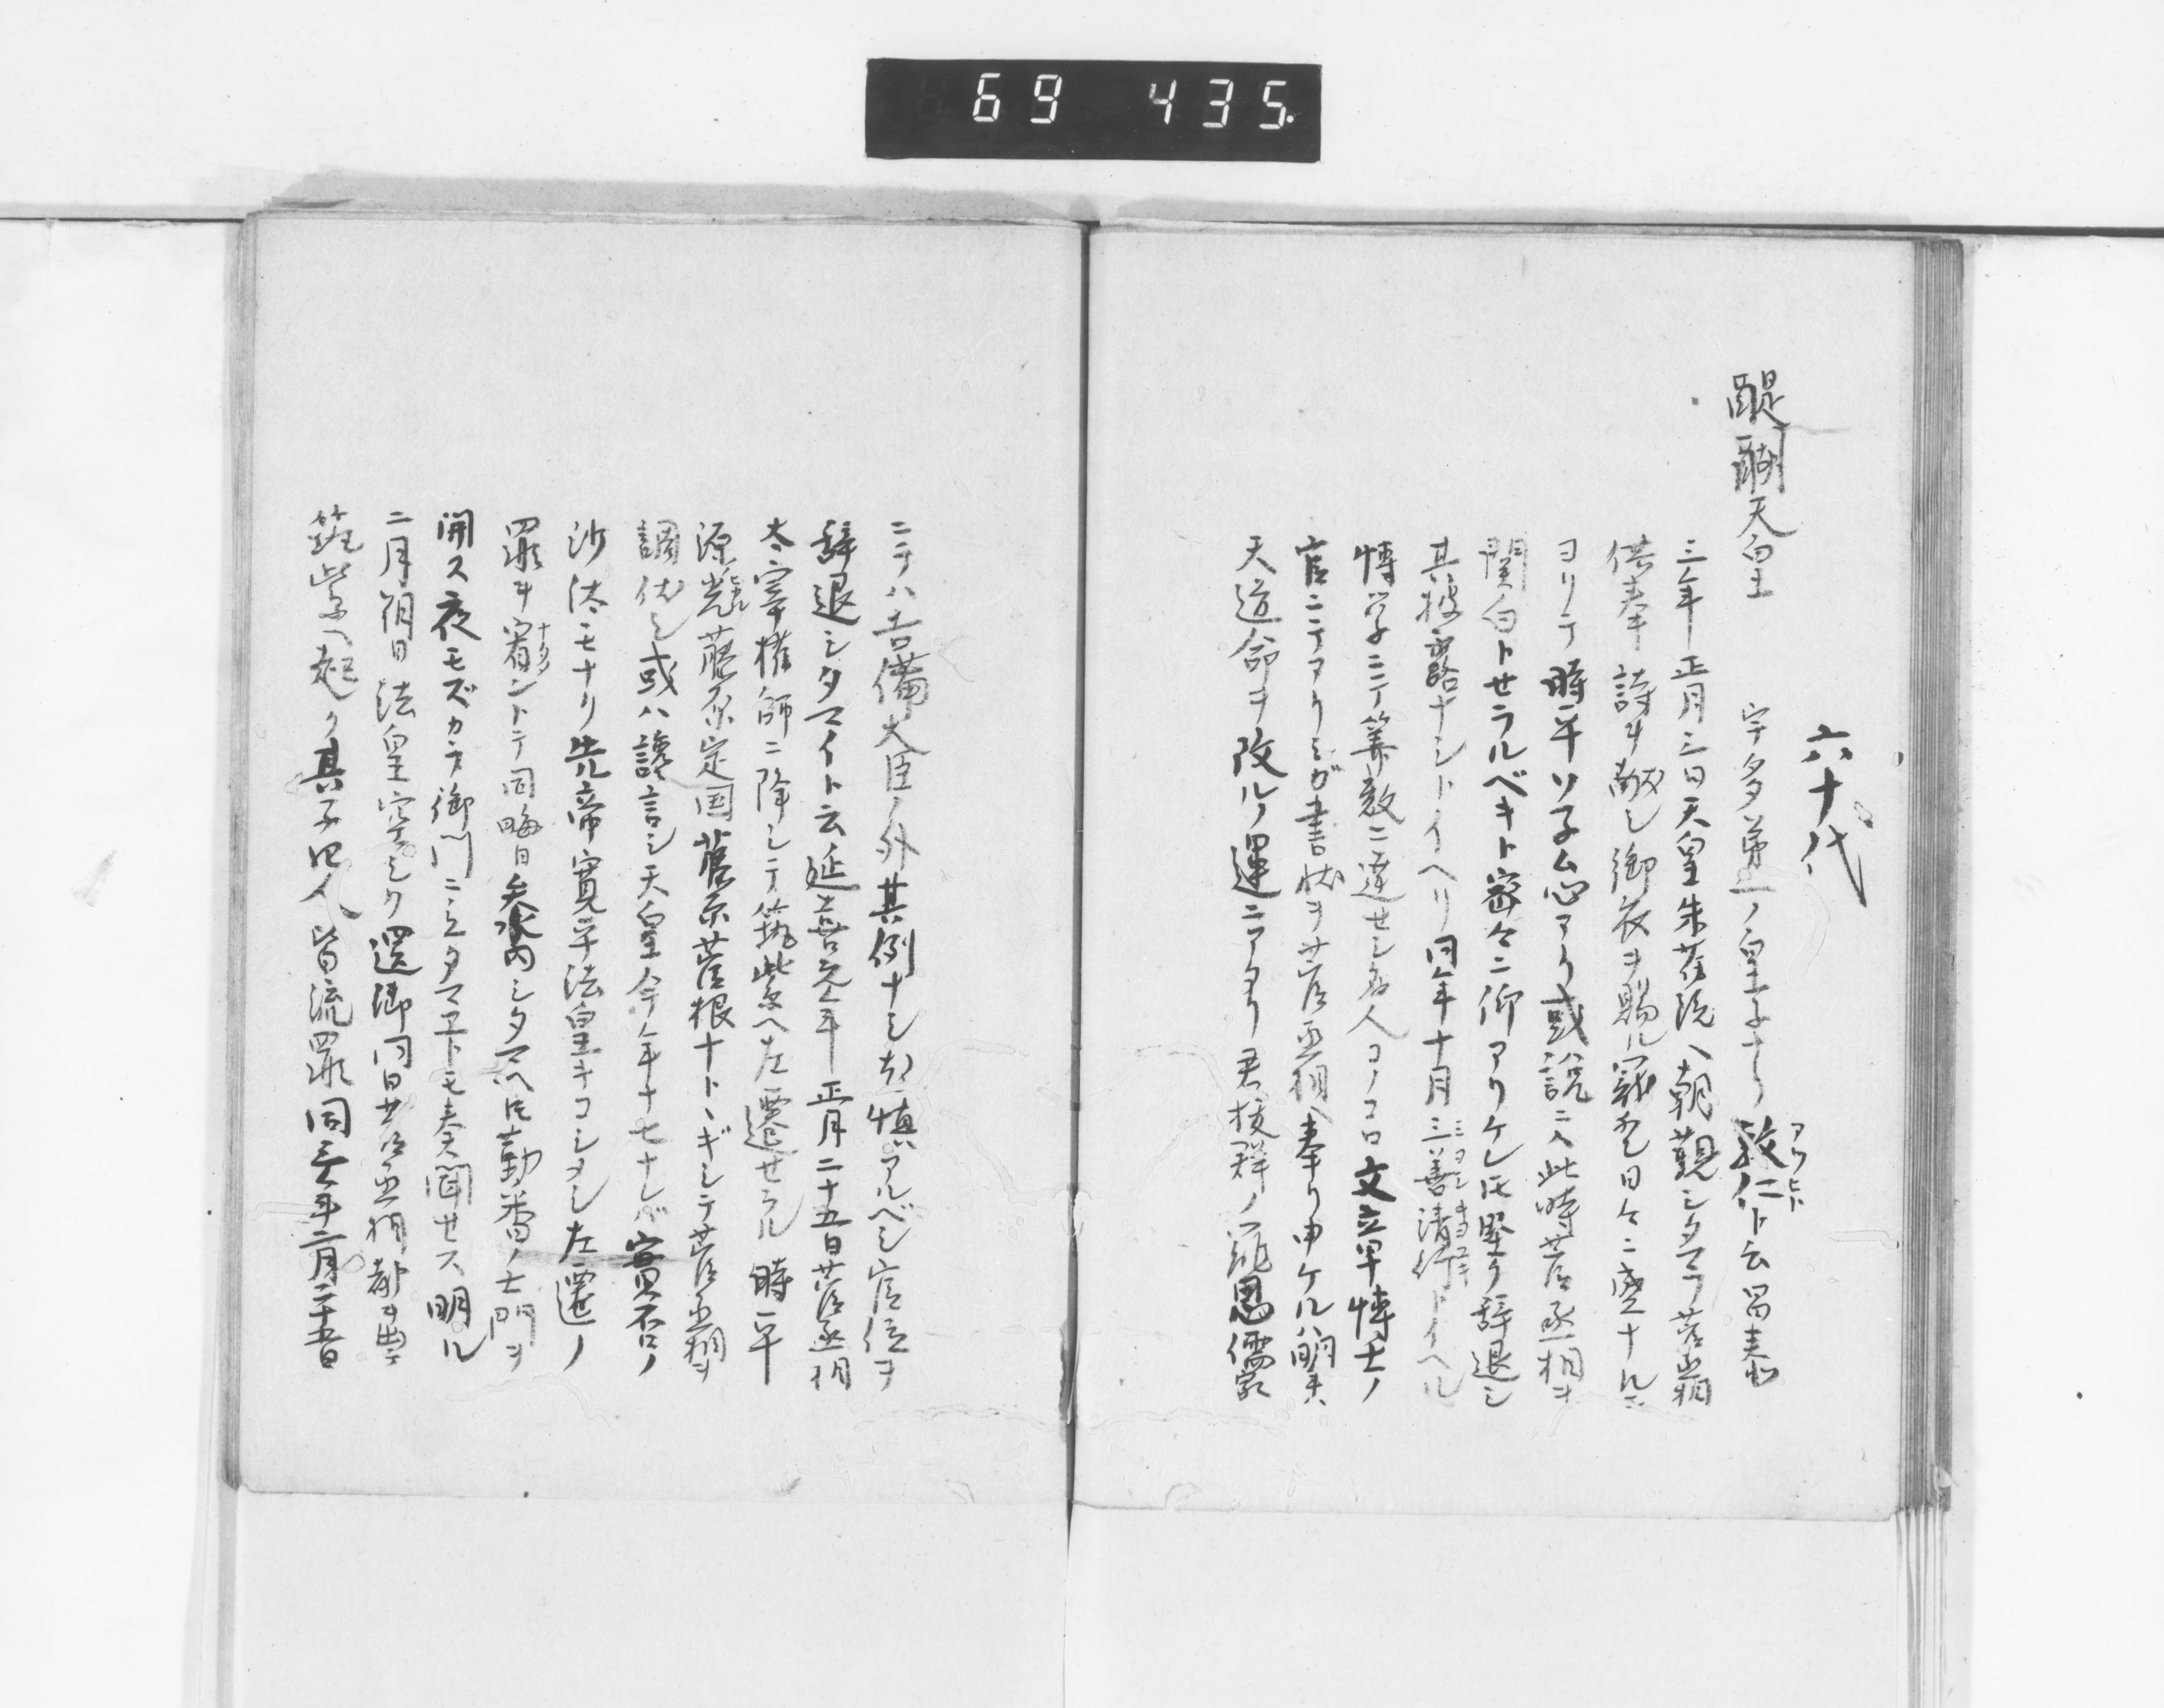 69 435.
六十代
醍醐天皇 宇多第一ノ皇子ナリ 敦仁ト云昌泰
アツヒト
三年正月三日天皇朱雀院ヘ朝覲シタマフ菅丞相
供奉詩ヲ献シ御衣ヲ賜ル 日々ニ盛ナルニ
ヨリテ時平ソネム心アリ或説ニ八此時菅丞相ヲ
関白トセラルベキト密々ニ仰アリケレ𪜈堅ク辞退シ
其披露ナシトイヘリ同年十月三善清行トイヘル
ミヨシ キヨツラ
博学ニテ算数ニ達セシ名人コノコロ文章博士ノ
官ニテアリシガ書状ヲ菅丞相ヘ奉リ申ケルハ明年ハ
天道命ヲ改ルノ運ニアタリ君抜群ノ 恩儒家
ニテハ吉備大臣ノ外其例ナシ 慎アルベシ官位ヲ
辞退シタマイト云延喜元年正月二十五日菅丞相
太宰権師ニ降シテ筑紫ヘ左遷セラル時平
源光藤原定国藤原菅根ナトヽギシテ菅丞相ヲ
ヒカル
調伏シ或ハ讒言シ天皇今年十七ナレバ実否ノ
沙汰モナリ先帝寛平法皇キコシメシ左遷ノ
罪ヲ宥ントテ同晦日参内シタマヘ𪜈勤番ノ士門ヲ
ナタメ
開ス夜モズカラ御門ニシタマエトモ奏聞せス明ル
二月朔日法皇空シク還御同日菅丞相都ヲ出テ
筑紫ヘ起ク其子四人皆流罪同三年二月二十五日